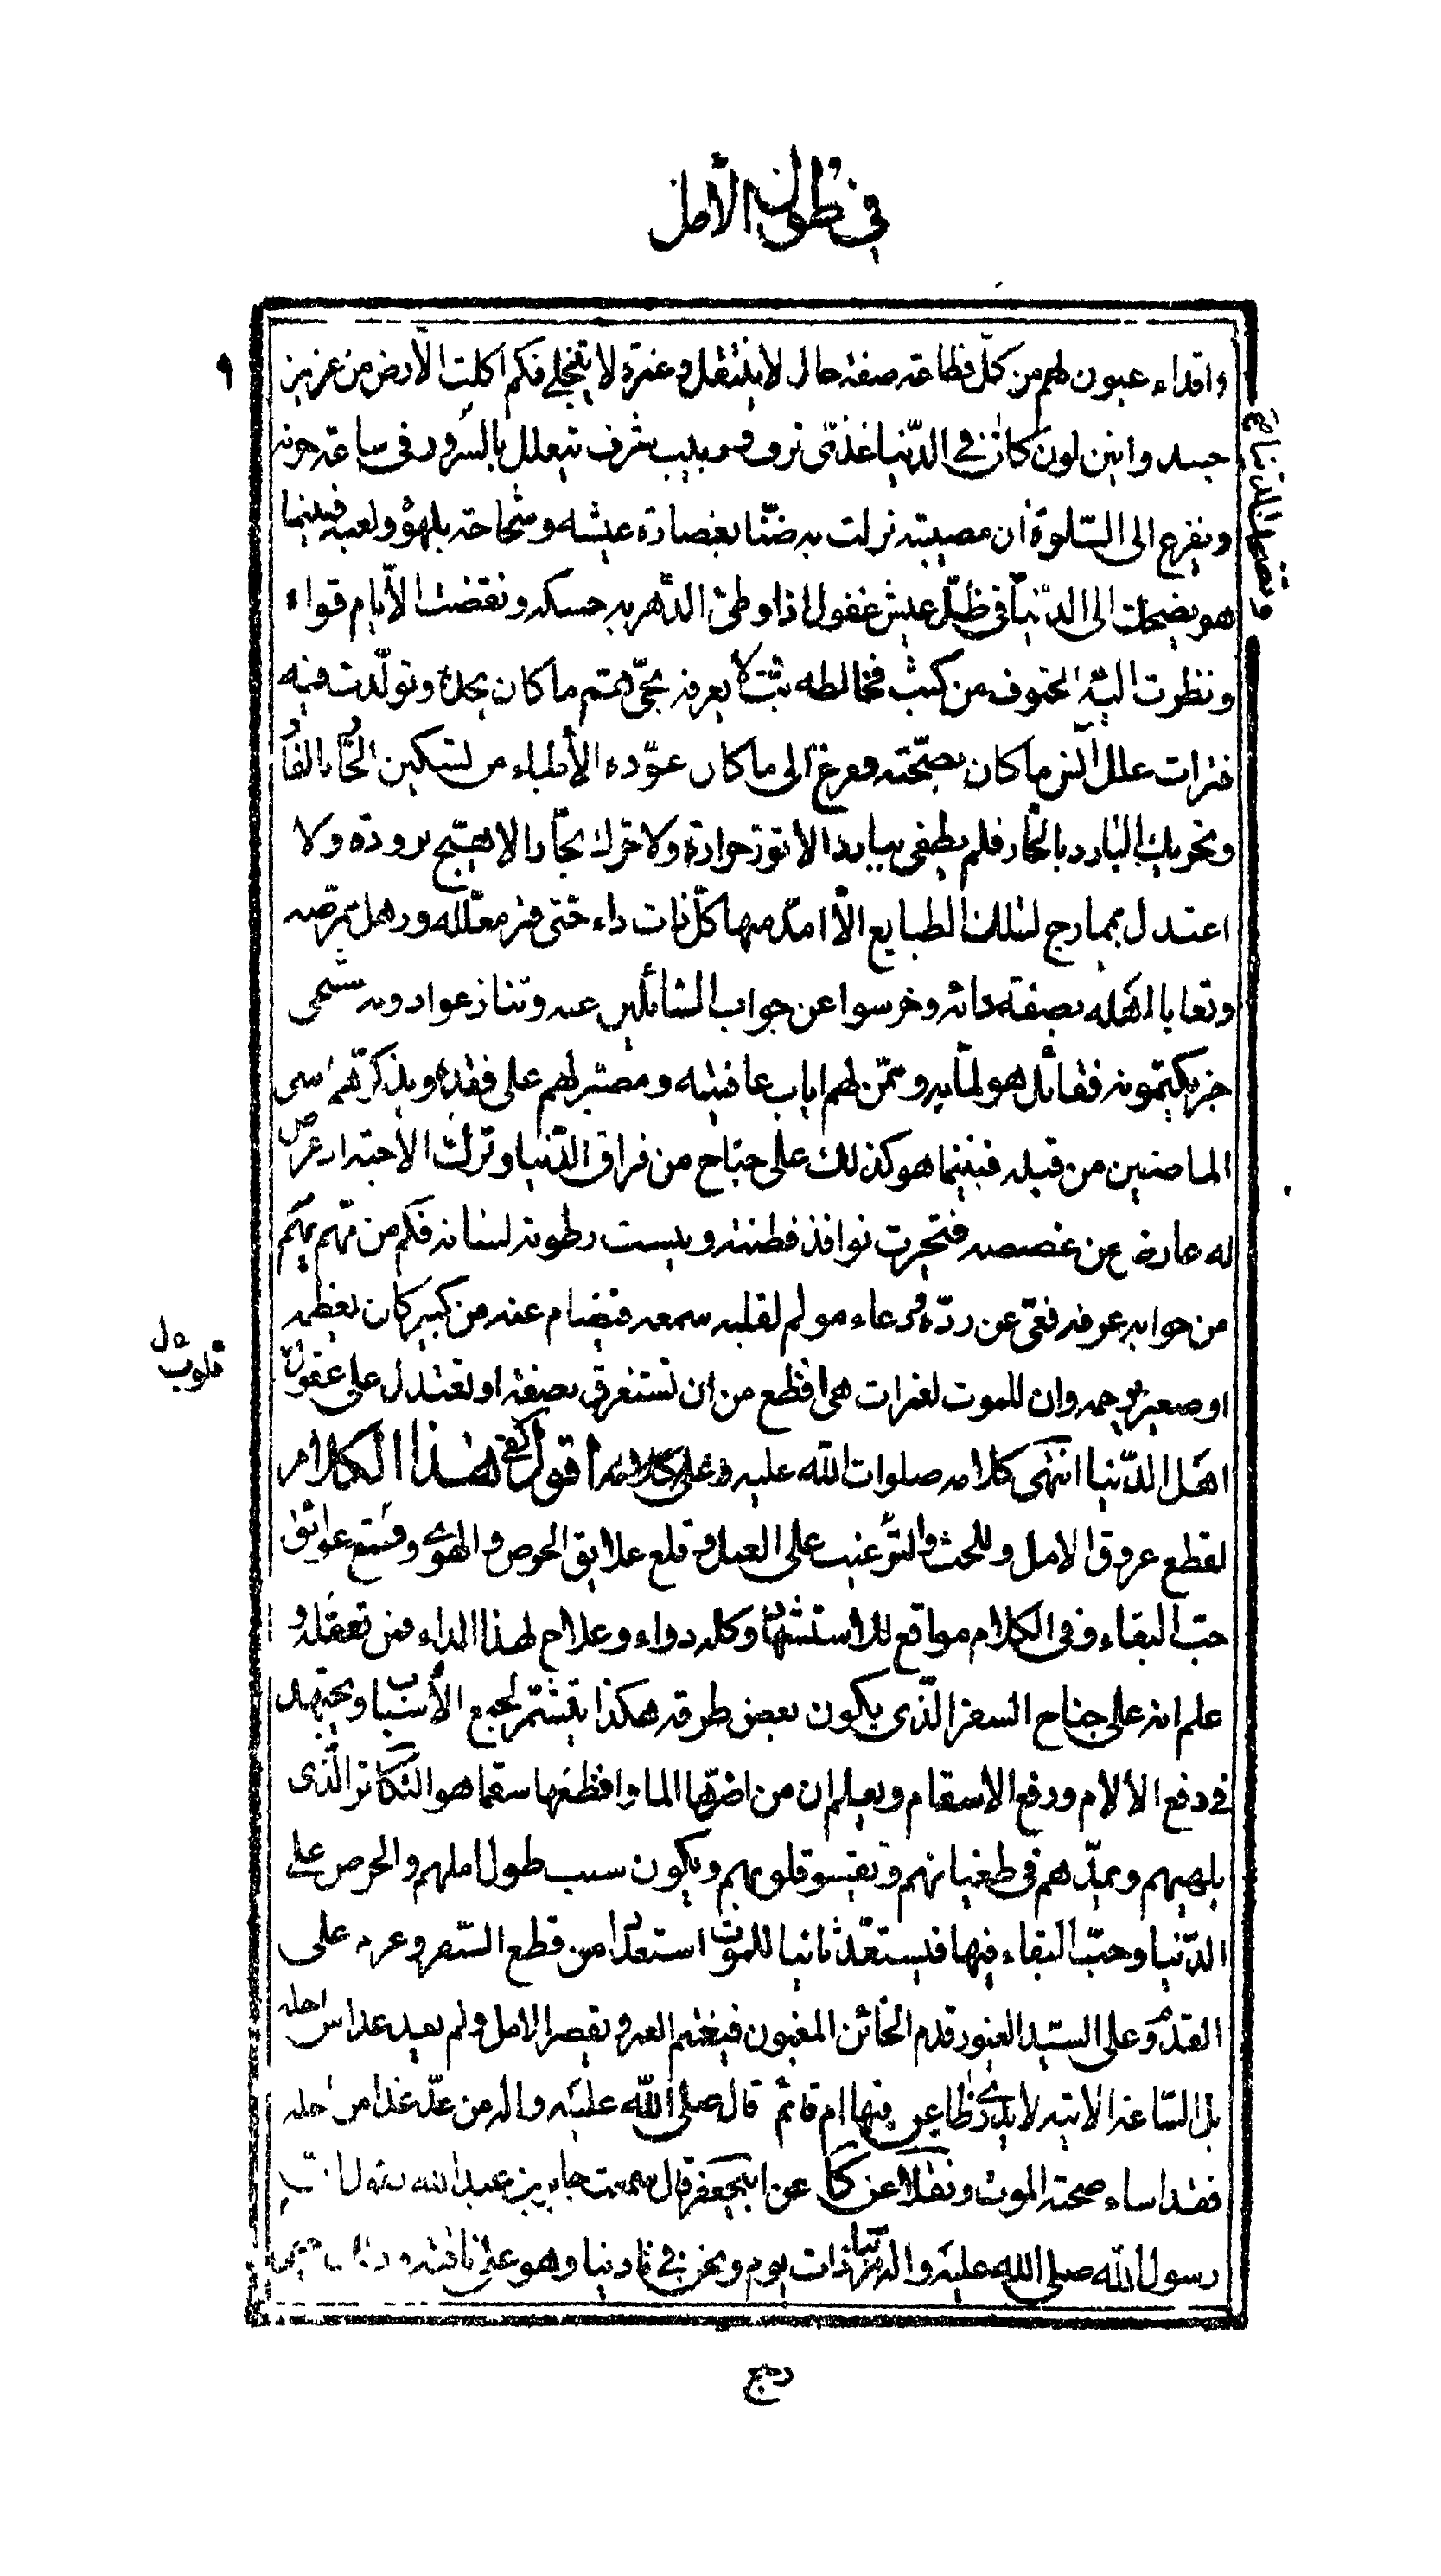 في طول الأمل
٩
واقذاء عيون لهم من كلّ فظاعة صفة حال لا ينتقل وغمرة لا تنجلي فكم اكلت الأرض من عزيز
جسد وانيق لون كان في الدّنيا غذىّ ترف وربيب شرف يتعلل بالسّرور في ساعة حزنه
ويفزع الى السّلوة ان مصيبته نزلت به ضنّا بغضارة عيشه وشحاحة بلهوه ولعبه فبينما
هو يضحك الى الدّنيا في ظلّ عيش غفول اذ اوطئ الدّهر به حسكه ونقضت الأيام قواه
ونظرت اليه الحتوف من كثب فخالطه بثّ لا يعرفه نجىّ همّ ما كان يجده وتولّدت فيه
فترات علل آنس ما كان بصحّته ففزع الى ما كان عوّده الأطباء من تسكين الحارّ بالقارّ
وتحريك البارد بالحارّ فلم يطفئ ببارد الا ثوّر حرارة ولا حرّك بحارّ الا هيّج برودة ولا
اعتدل بممازج لتلك الطبايع الّا امدّ منها كلّ ذات داء حتى فتر معلّله وذهل ممرّضه
وتعايا اهله بصفة دائه وخرسوا عن جواب السّائلين عنه وتنازعوا دونه شجى
خبر يكتمونه فقائل هو لما به وممنّ لهم اياب عافيته ومصبّر لهم على فقده ويذكّرهم اسى
الماضين من قبله فبينما هو كذلك على جناح من فراق الدّنيا وترك الأحبة اذ عرض
له عارض من غصصه فتحيرت نوافذ فطنته ويبست رطوبة لسانه فكم من مهم
من جوابه عرفه فعىّ عن ردّه ودعاء مولم لقلبه سمعه فتصام عنه من كبير كان يعظمه
او صغير يرحمه وان للموت لغمرات هى افظع من ان تستغرق بصفة او تعتدل على عقول
قلوب ل
اهل الدّنيا انتهى كلامه صلوات الله عليه وعلى اقول كفى هذا الكلام
لقطع عروق الامل وللحث والترغيب على العمل وقلع علايق الحرص والهوى وقمع عوائق
حبّ البقاء وفي الكلام مواقع للاستشهاد وكله دواء وعلاج لهذا الداء فمن تعقله و
علم انه على جناح السفر الّذى يكون بعض طرقه هكذا يتشمّر لجمع الأسباب ويجتهد
في دفع الألام ورفع الاسقام ويعلم ان من اضرّها الما وافظعها سقما هو التكاثر الّذى
يلهيهم ويمدّهم في طغيانهم وتقسو قلوبهم ويكون سبب طول املهم والحرص على
الدّنيا وحبّ البقاء فيها فيستعدّ ثانيا للموت استعداد من قطع السّفر وعزم على
القدوم على السيّد الغيور قدم الخائن المغبون فيغتنم العمر ويقصر الامل ولم يعد غدا من اجله
بل السّاعة الاتية لا يدرى ظاعن فيها ام قائم قال صلى الله عليه واله من عدّ غدا من اجله
فقد اساء صحبة الموت ونقلا عن كا عن ابيجعفر قال سمعت جابر بن عبد الله يقول انّ
رسول الله صلى الله عليه واله مرّ بنا ذات يوم ونحن في نادينا وهو على ناقته
رجع